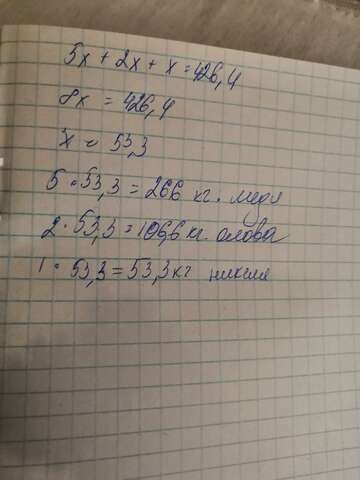 5x + 2x + x = 426,4
8x = 426,4
x = 53,3
5 · 53,3 = 266 кг. меди
2 · 53,3 = 106,6 кг. олова
1 · 53,3 = 53,3 кг никеля